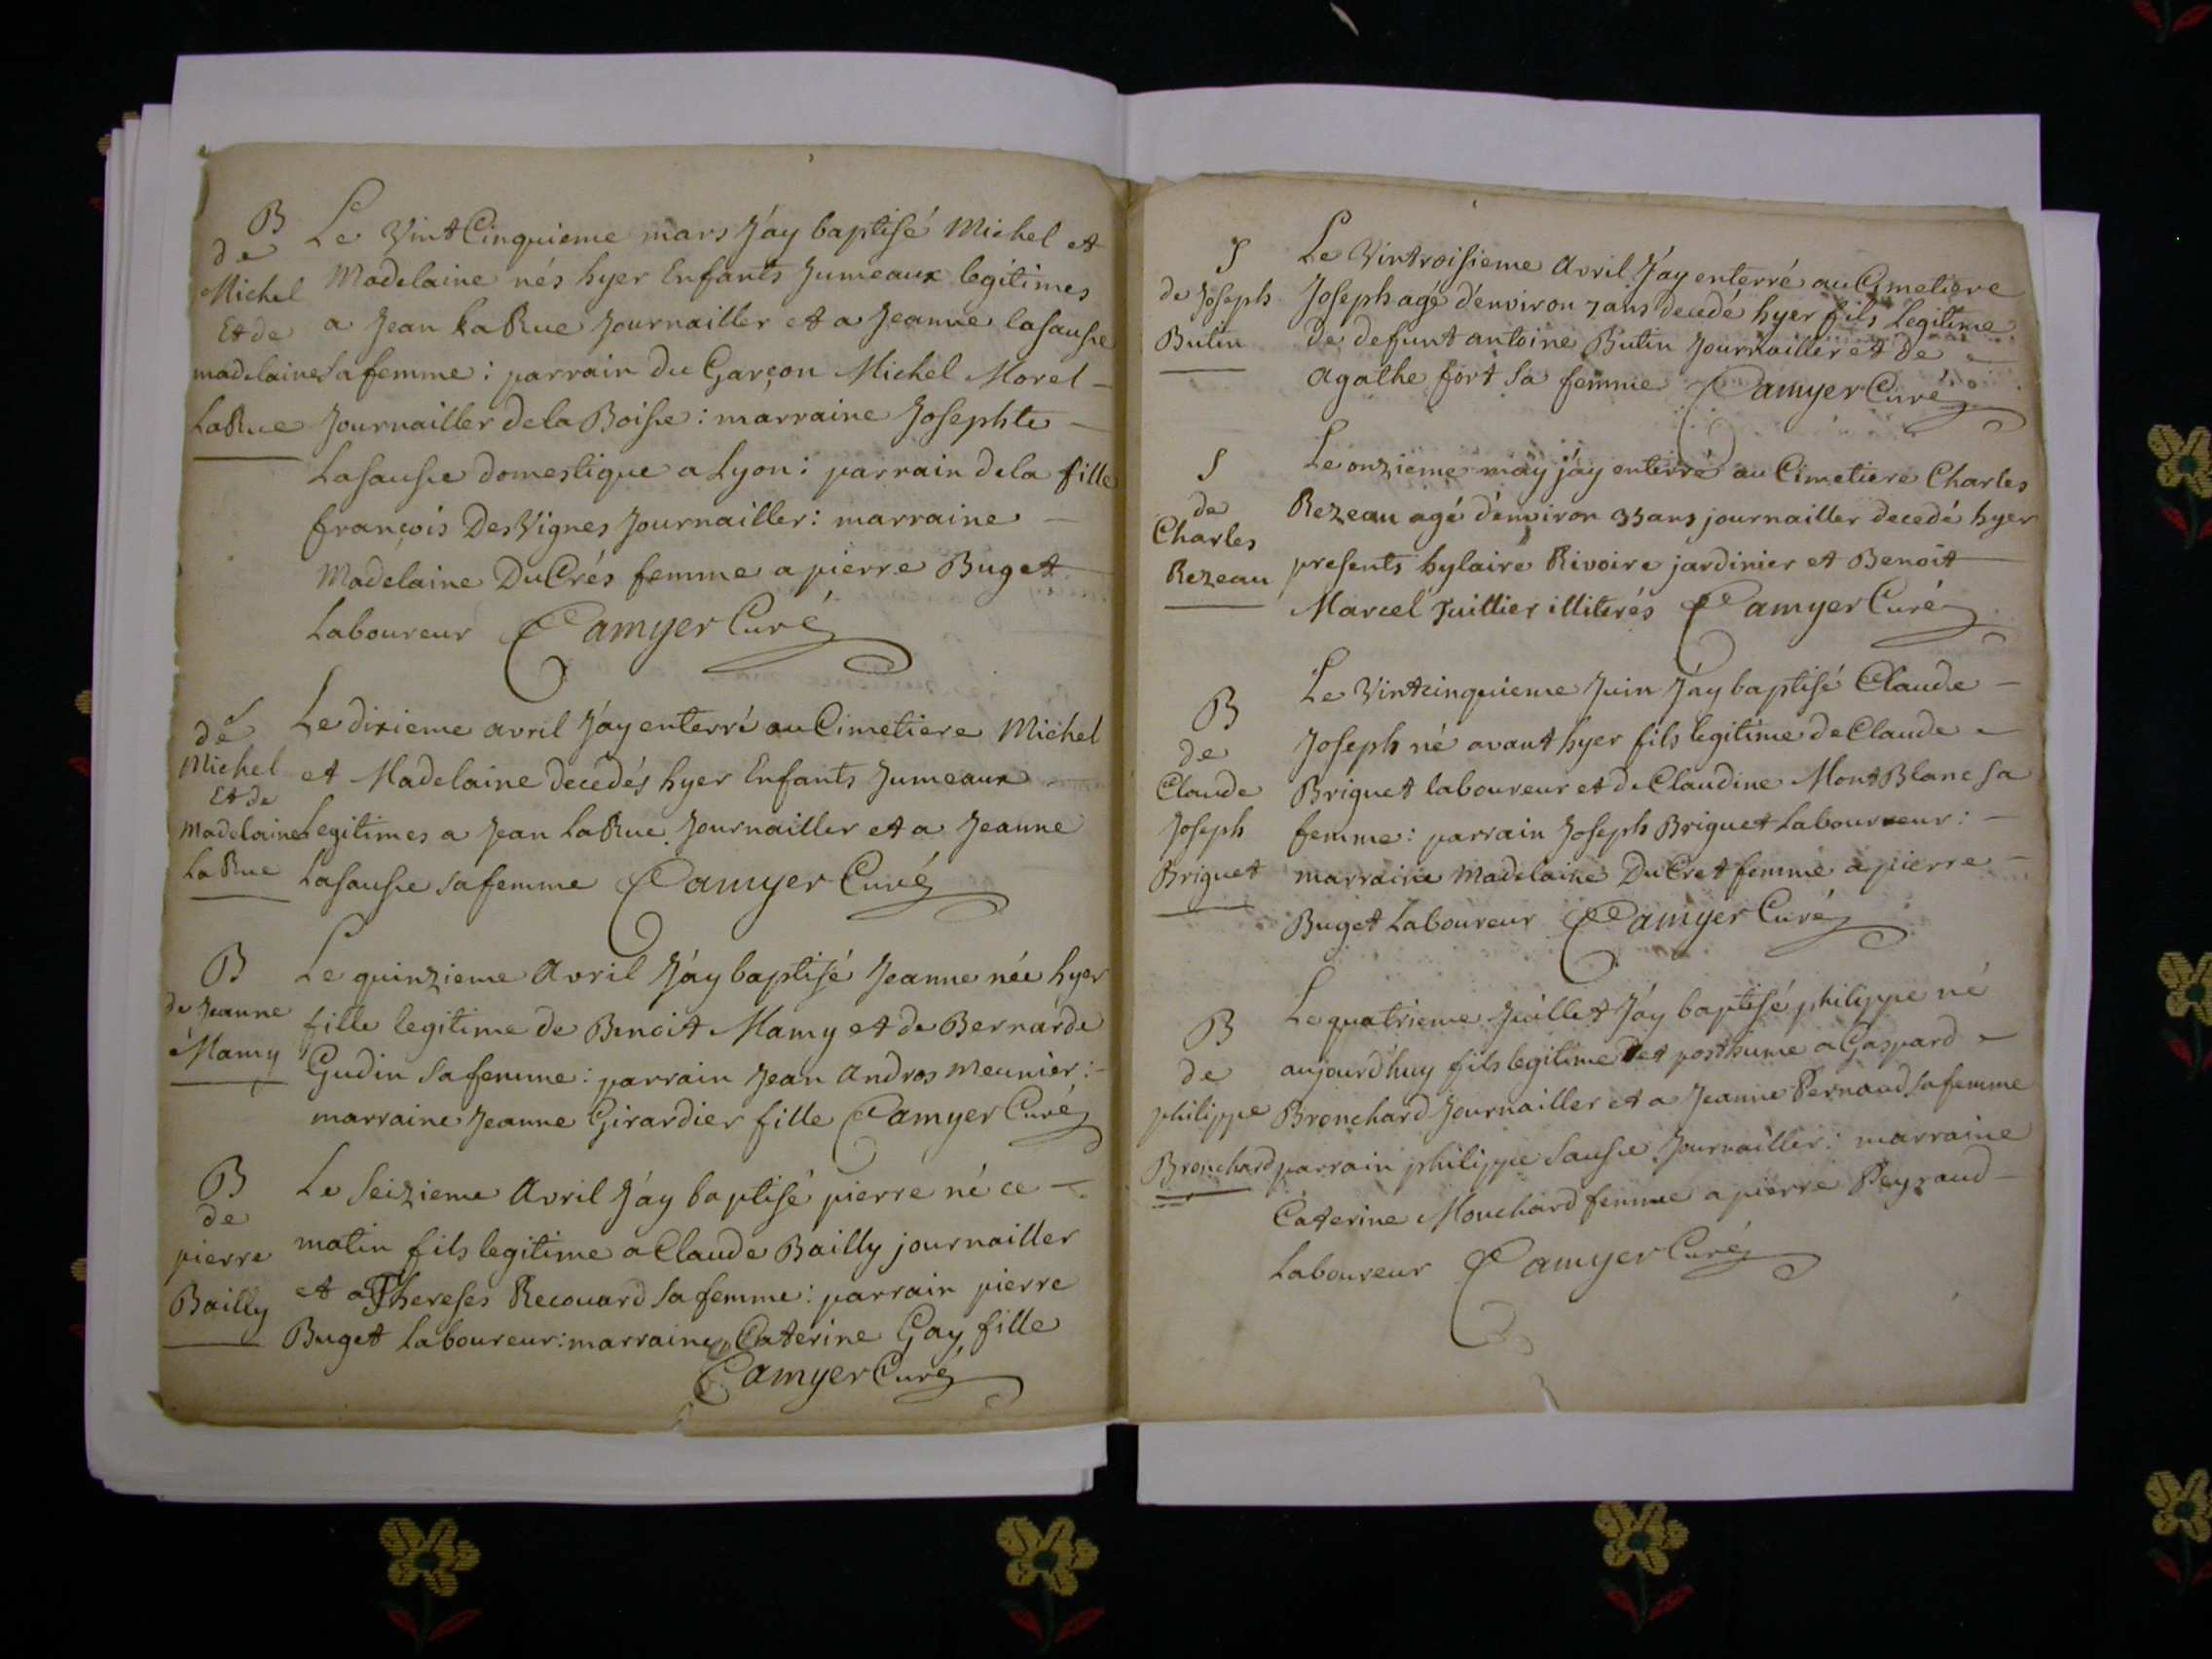 B
de
Michel
Et de
madelaine
LaRue
Le Vint Cinquieme mars J'ay baptisé Michel et
Madelaine nés hyer Enfants Jumeaux legitimes
a Jean LaRue Journailler et a Jeanne lasausse
sa femme : parrain du Garçon Michel Morel -
Journailler de la Boisse : marraine Josephte -
Lasausse domestique a Lyon : parrain de la fille
françois DesVignes Journailler : marraine -
Madelaine DuCrés femme a pierre Buget -
Laboureur Camyer Curé
S
de
Michel
Et de
Madelaine
LaRue
Le dixieme avril J'ay enterré au Cimetiere Michel
et Madelaine decedés hyer Enfants Jumeaux -
Legitimes a Jean LaRue Journailler et a Jeanne
Lasausse sa femme Camyer Curé
B
de Jeanne
Mamy
Le quinzieme Avril J'ay baptisé Jeanne née hyer
fille legitime de Benoit Mamy et de Bernarde
Gudin sa femme : parrain Jean Andros Meunier : -
marraine Jeanne Girardier fille Camyer Curé
B
de
pierre
Bailly
Le Seizieme Avril J'ay baptisé pierre né ce -
matin fils legitime a Claude Bailly journailler
et a Thereses Recouard sa femme : parrain pierre
Buget Laboureur : marraine Caterine Gay fille
Camyer Curé
S
de Joseph
Butin
Le Vintroisieme Avril J'ay enterré au Cimetiere
Joseph agé d'environ 7 ans decedé hyer fils Legitime
de defunt antoine Butin Journailler et de -
Agathe fort sa femme Camyer Curé
S
de
Charles
Rezeau
Le onzieme may j'ay enterré au Cimetiere Charles
Rezeau agé d'environ 35 ans journailler decedé hyer
presents hylaire Rivoire jardinier et Benoit -
Marcel Tuillier illiterés Camyer Curé
B
de
Claude
Joseph
Briguet
Le Vintcinquieme Juin J'ay baptisé Claude -
Joseph né avant hyer fils legitime de Claude -
Briguet laboureur et de Claudine MontBlanc sa
femme : parrain Joseph Briguet Laboureur : -
marraine Madelaine DuCret femme a pierre -
Buget Laboureur Camyer Curé
B
de
philippe
Bronchard
Le quatrieme Juillet J'ay baptisé philippe né
aujourd'huy fils legitime et posthume a Gaspard -
Bronchard Journailler et a Jeanne Pernaud sa femme
parrain philippe Sausse Journailler : marraine
Caterine Mouchard femme a pierre Peyraud -
Laboureur Camyer Curé